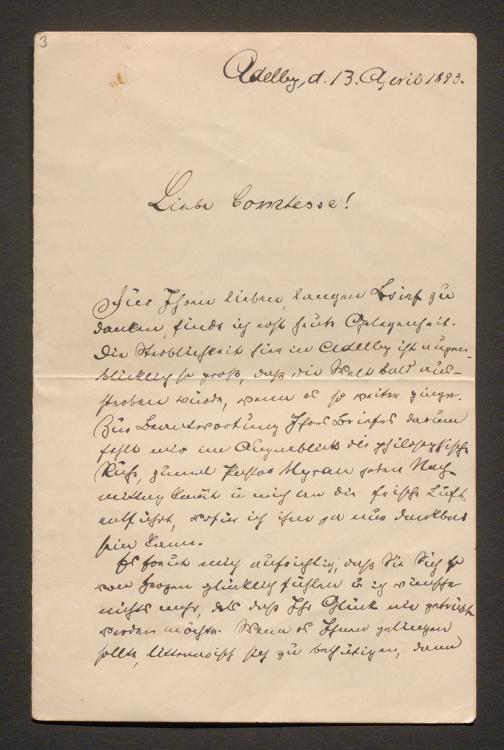 3
Adelby, d. 13. April 1893.
Liebe Comtesse!
Für Ihren lieben langen Brief zu
danken, finde ich erst heute Gelegenheit.
Die Sterblichkeit hier in Adelby ist augen-
blicklich so groß, daß die Welt bald aus-
sterben würde, wenn es so weiter ginge.
Zur Beantwortung Ihres Briefes darum
fehlt mir im Augenblick die philosophische
Ruhe, zumal Pastor jeden Nach-
mittag kommt u mich an die frische Luft
entführt, wofür ich ihm ja nur dankbar
sein kann.
Es freut mich aufrichtig, daß Sie Sich so
von Herzen glücklich fühlen u ich wünsche
nichts mehr, als daß Ihr Glück nie getrübt
werden möchte. Wenn es Ihnen gelingen
sollte, litterarisch sich zu bethätigen, dann